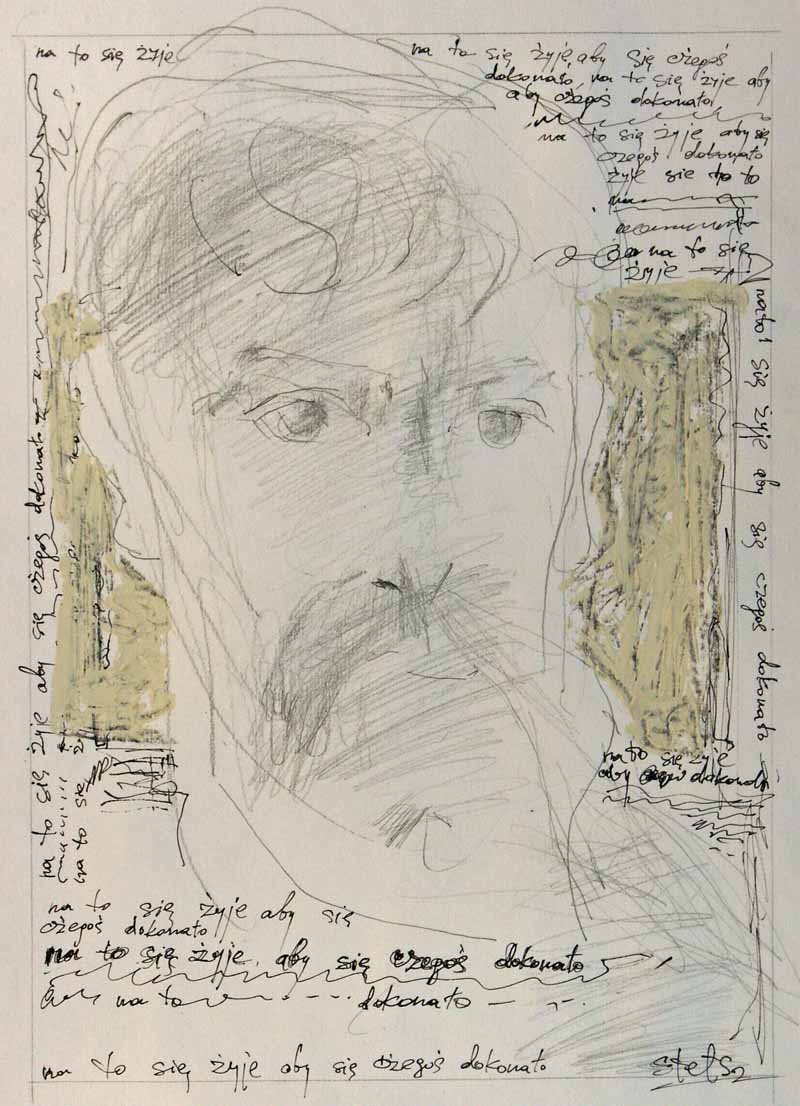 na to się żyje
na to się żyje, aby się czegoś
dokonało, na to się żyje aby
aby czegoś dokonało,
na to się żyje aby się
czegoś dokonało
żyje sie to to
na
na to się
żyje
na to się żyje aby się czegoś dokonało
na to się
na to się żyje aby się czegoś dokonało
na to się żyje
aby czegoś dokonało
na to się żyje aby się
czegoś dokonało
na to się żyje, aby się czegoś dokonało
na to dokonało
na to się żyje aby się czegoś dokonało